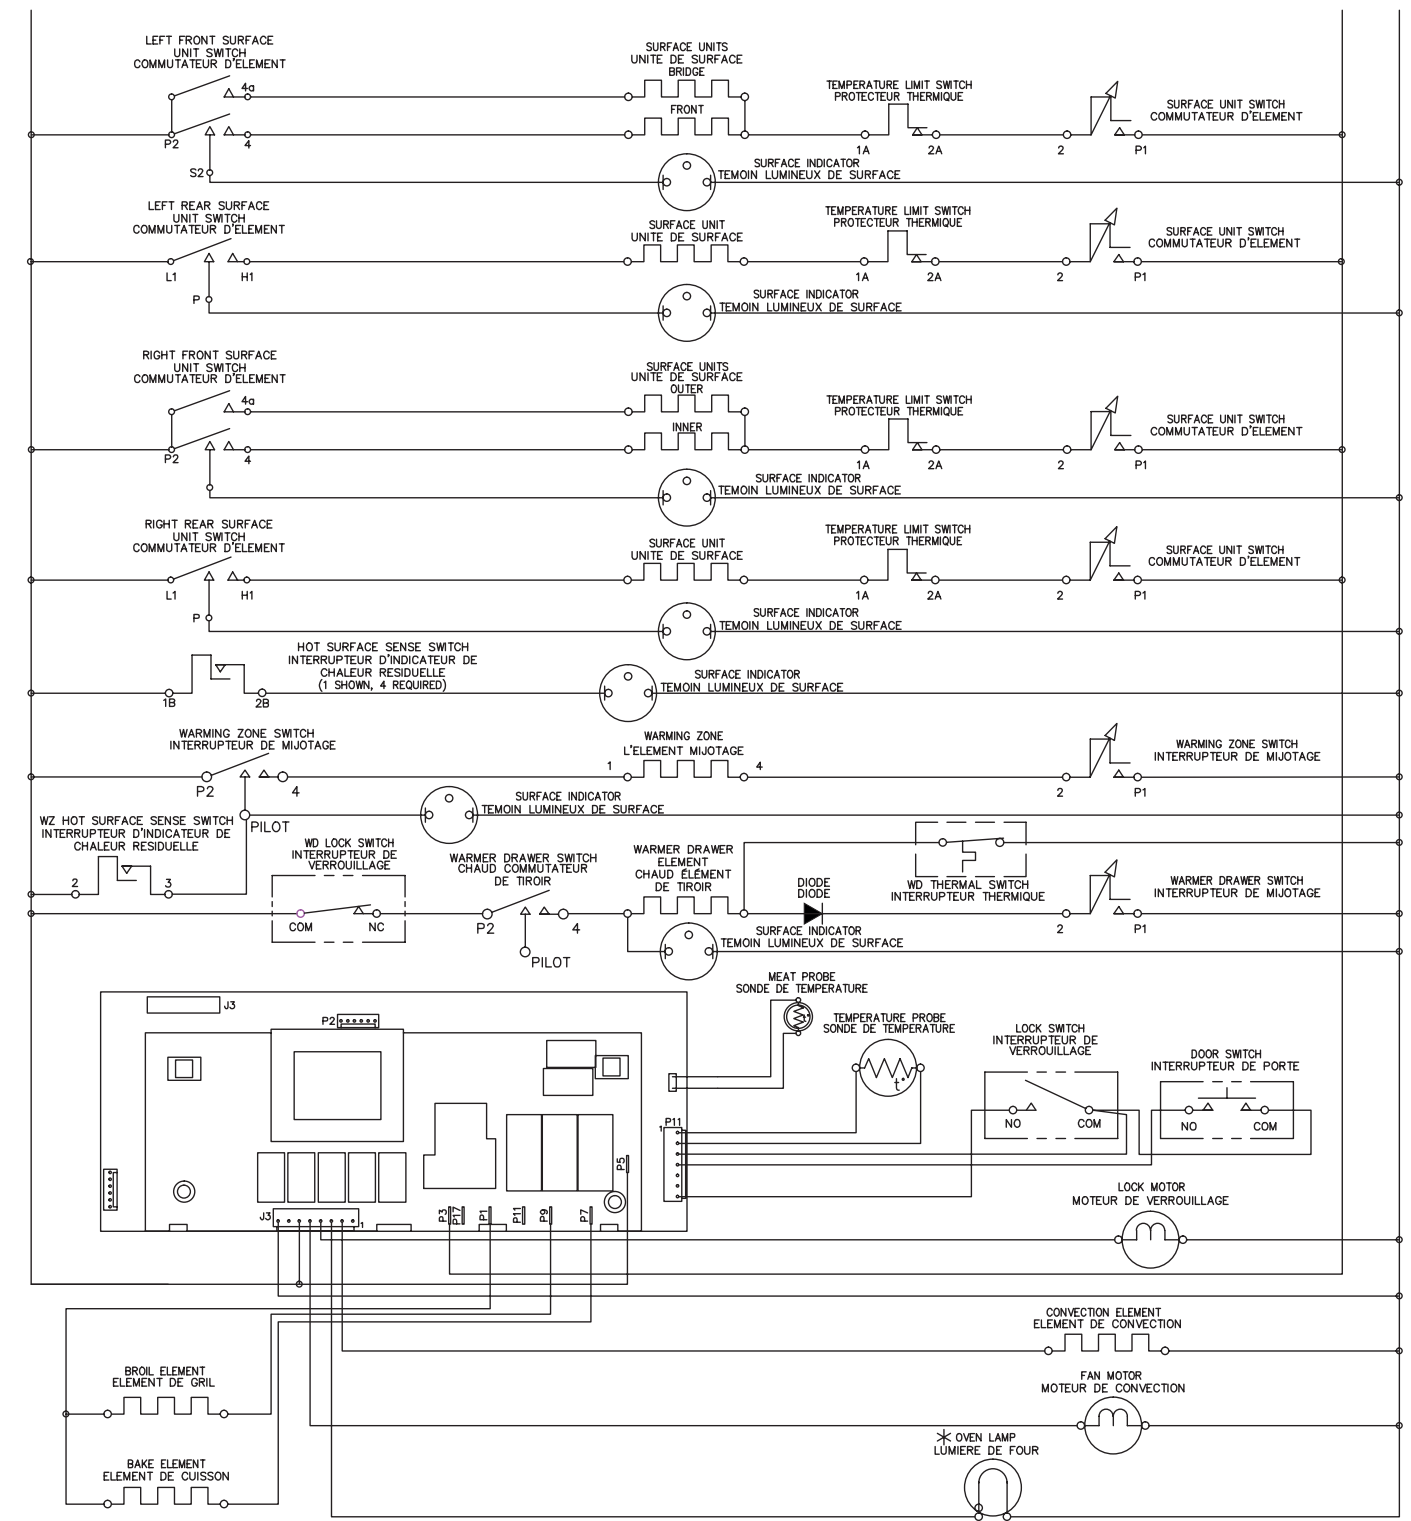 LEFT FRONT SURFACE
UNIT SWITCH
COMMUTATEUR D'ELEMENT
4a
P2
4
S2
SURFACE UNITS
UNITE DE SURFACE
BRIDGE
FRONT
TEMPERATURE LIMIT SWITCH
PROTECTEUR THERMIQUE
1A
2A
2
P1
SURFACE UNIT SWITCH
COMMUTATEUR D'ELEMENT
SURFACE INDICATOR
TEMOIN LUMINEUX DE SURFACE
LEFT REAR SURFACE
UNIT SWITCH
COMMUTATEUR D'ELEMENT
L1
H1
P
SURFACE UNIT
UNITE DE SURFACE
TEMPERATURE LIMIT SWITCH
PROTECTEUR THERMIQUE
1A
2A
2
P1
SURFACE UNIT SWITCH
COMMUTATEUR D'ELEMENT
SURFACE INDICATOR
TEMOIN LUMINEUX DE SURFACE
RIGHT FRONT SURFACE
UNIT SWITCH
COMMUTATEUR D'ELEMENT
4a
P2
4
SURFACE UNITS
UNITE DE SURFACE
OUTER
INNER
TEMPERATURE LIMIT SWITCH
PROTECTEUR THERMIQUE
1A
2A
2
P1
SURFACE UNIT SWITCH
COMMUTATEUR D'ELEMENT
SURFACE INDICATOR
TEMOIN LUMINEUX DE SURFACE
RIGHT REAR SURFACE
UNIT SWITCH
COMMUTATEUR D'ELEMENT
L1
H1
P
SURFACE UNIT
UNITE DE SURFACE
TEMPERATURE LIMIT SWITCH
PROTECTEUR THERMIQUE
1A
2A
2
P1
SURFACE UNIT SWITCH
COMMUTATEUR D'ELEMENT
SURFACE INDICATOR
TEMOIN LUMINEUX DE SURFACE
HOT SURFACE SENSE SWITCH
INTERRUPTEUR D'INDICATEUR DE
CHALEUR RESIDUELLE
(1 SHOWN, 4 REQUIRED)
1B
2B
SURFACE INDICATOR
TEMOIN LUMINEUX DE SURFACE
WARMING ZONE SWITCH
INTERRUPTEUR DE MIJOTAGE
P2
4
PILOT
WARMING ZONE
L'ELEMENT MIJOTAGE
1
4
2
P1
WARMING ZONE SWITCH
INTERRUPTEUR DE MIJOTAGE
SURFACE INDICATOR
TEMOIN LUMINEUX DE SURFACE
WZ HOT SURFACE SENSE SWITCH
INTERRUPTEUR D'INDICATEUR DE
CHALEUR RESIDUELLE
2
3
WD LOCK SWITCH
INTERRUPTEUR DE
VERROUILLAGE
COM
NC
WARMER DRAWER SWITCH
CHAUD COMMUTATEUR
DE TIROIR
P2
4
PILOT
WARMER DRAWER
ELEMENT
CHAUD ÉLÉMENT
DE TIROIR
DIODE
DIODE
WD THERMAL SWITCH
INTERRUPTEUR THERMIQUE
2
P1
WARMER DRAWER SWITCH
INTERRUPTEUR DE MIJOTAGE
SURFACE INDICATOR
TEMOIN LUMINEUX DE SURFACE
MEAT PROBE
SONDE DE TEMPERATURE
t°
TEMPERATURE PROBE
SONDE DE TEMPERATURE
t°
LOCK SWITCH
INTERRUPTEUR DE
VERROUILLAGE
NO
COM
DOOR SWITCH
INTERRUPTEUR DE PORTE
NO
COM
J3
P2
P11
1
P5
J3
1
P3
P17
P1
P11
P9
P7
LOCK MOTOR
MOTEUR DE VERROUILLAGE
CONVECTION ELEMENT
ELEMENT DE CONVECTION
BROIL ELEMENT
ELEMENT DE GRIL
FAN MOTOR
MOTEUR DE CONVECTION
BAKE ELEMENT
ELEMENT DE CUISSON
* OVEN LAMP
LUMIERE DE FOUR